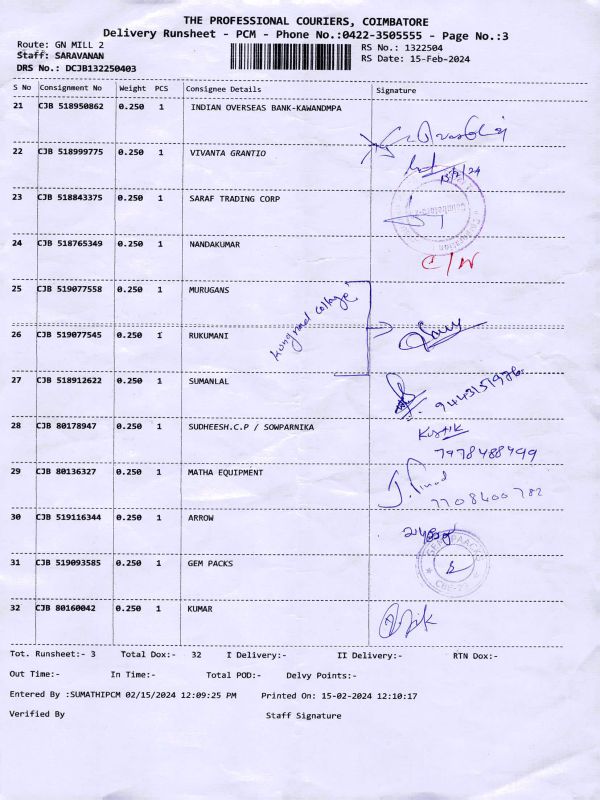 THE PROFESSIONAL COURIERS, COIMBATORE
Delivery Runsheet - PCM - Phone No.:0422-3505555 - Page No.:3
Route: GN MILL 2 RS No.: 1322504
Staff: SARAVANAN RS Date: 15-Feb-2024
DRS No.: DCJB132250403
S No Consignment No Weight PCS Consignee Details Signature
21 CJB 518950862 0.250 1 INDIAN OVERSEAS BANK-KAWANDMPA
22 CJB 518999775 0.250 1 VIVANTA GRANTIO
15/2/24
23 CJB 518843375 0.250 1 SARAF TRADING CORP
24 CJB 518765349 0.250 1 NANDAKUMAR
C/N
25 CJB 519077558 0.250 1 MURUGANS
college
26 CJB 519077545 0.250 1 RUKUMANI
27 CJB 518912622 0.250 1 SUMANLAL
28 CJB 80178947 0.250 1 SUDHEESH.C.P / SOWPARNIKA
7978488499
29 CJB 80136327 0.250 1 MATHA EQUIPMENT
7708400782
30 CJB 519116344 0.250 1 ARROW
31 CJB 519093585 0.250 1 GEM PACKS
32 CJB 80160042 0.250 1 KUMAR
Tot. Runsheet:- 3 Total Dox:- 32 I Delivery:- II Delivery:- RTN Dox:-
Out Time:- In Time:- Total POD:- Delvy Points:-
Entered By :SUMATHIPCM 02/15/2024 12:09:25 PM Printed On: 15-02-2024 12:10:17
Verified By Staff Signature